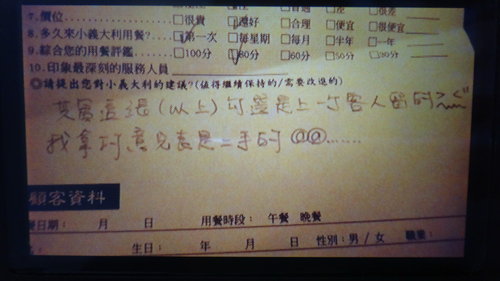 7.價位 □很貴 □還好 □合理 □便宜 □很便宜
8.多久來小義大利用餐?.... □第一次 □每星期 □每月 □半年 □一年
9.綜合您的用餐評鑑 □100分 □80分 □60分 □50分 □30分
10.印象最深刻的服務人員
◎請提出您對小義大利的建議?(值得繼續保持的/需要改進的)
其實這張(以上)的還是上一个客人留的
我拿的意見表是二手的@@......
顧客資料
日期: 月 日 用餐時段: 午餐 晚餐
生日: 年 月 日 性別:男/女 職業: